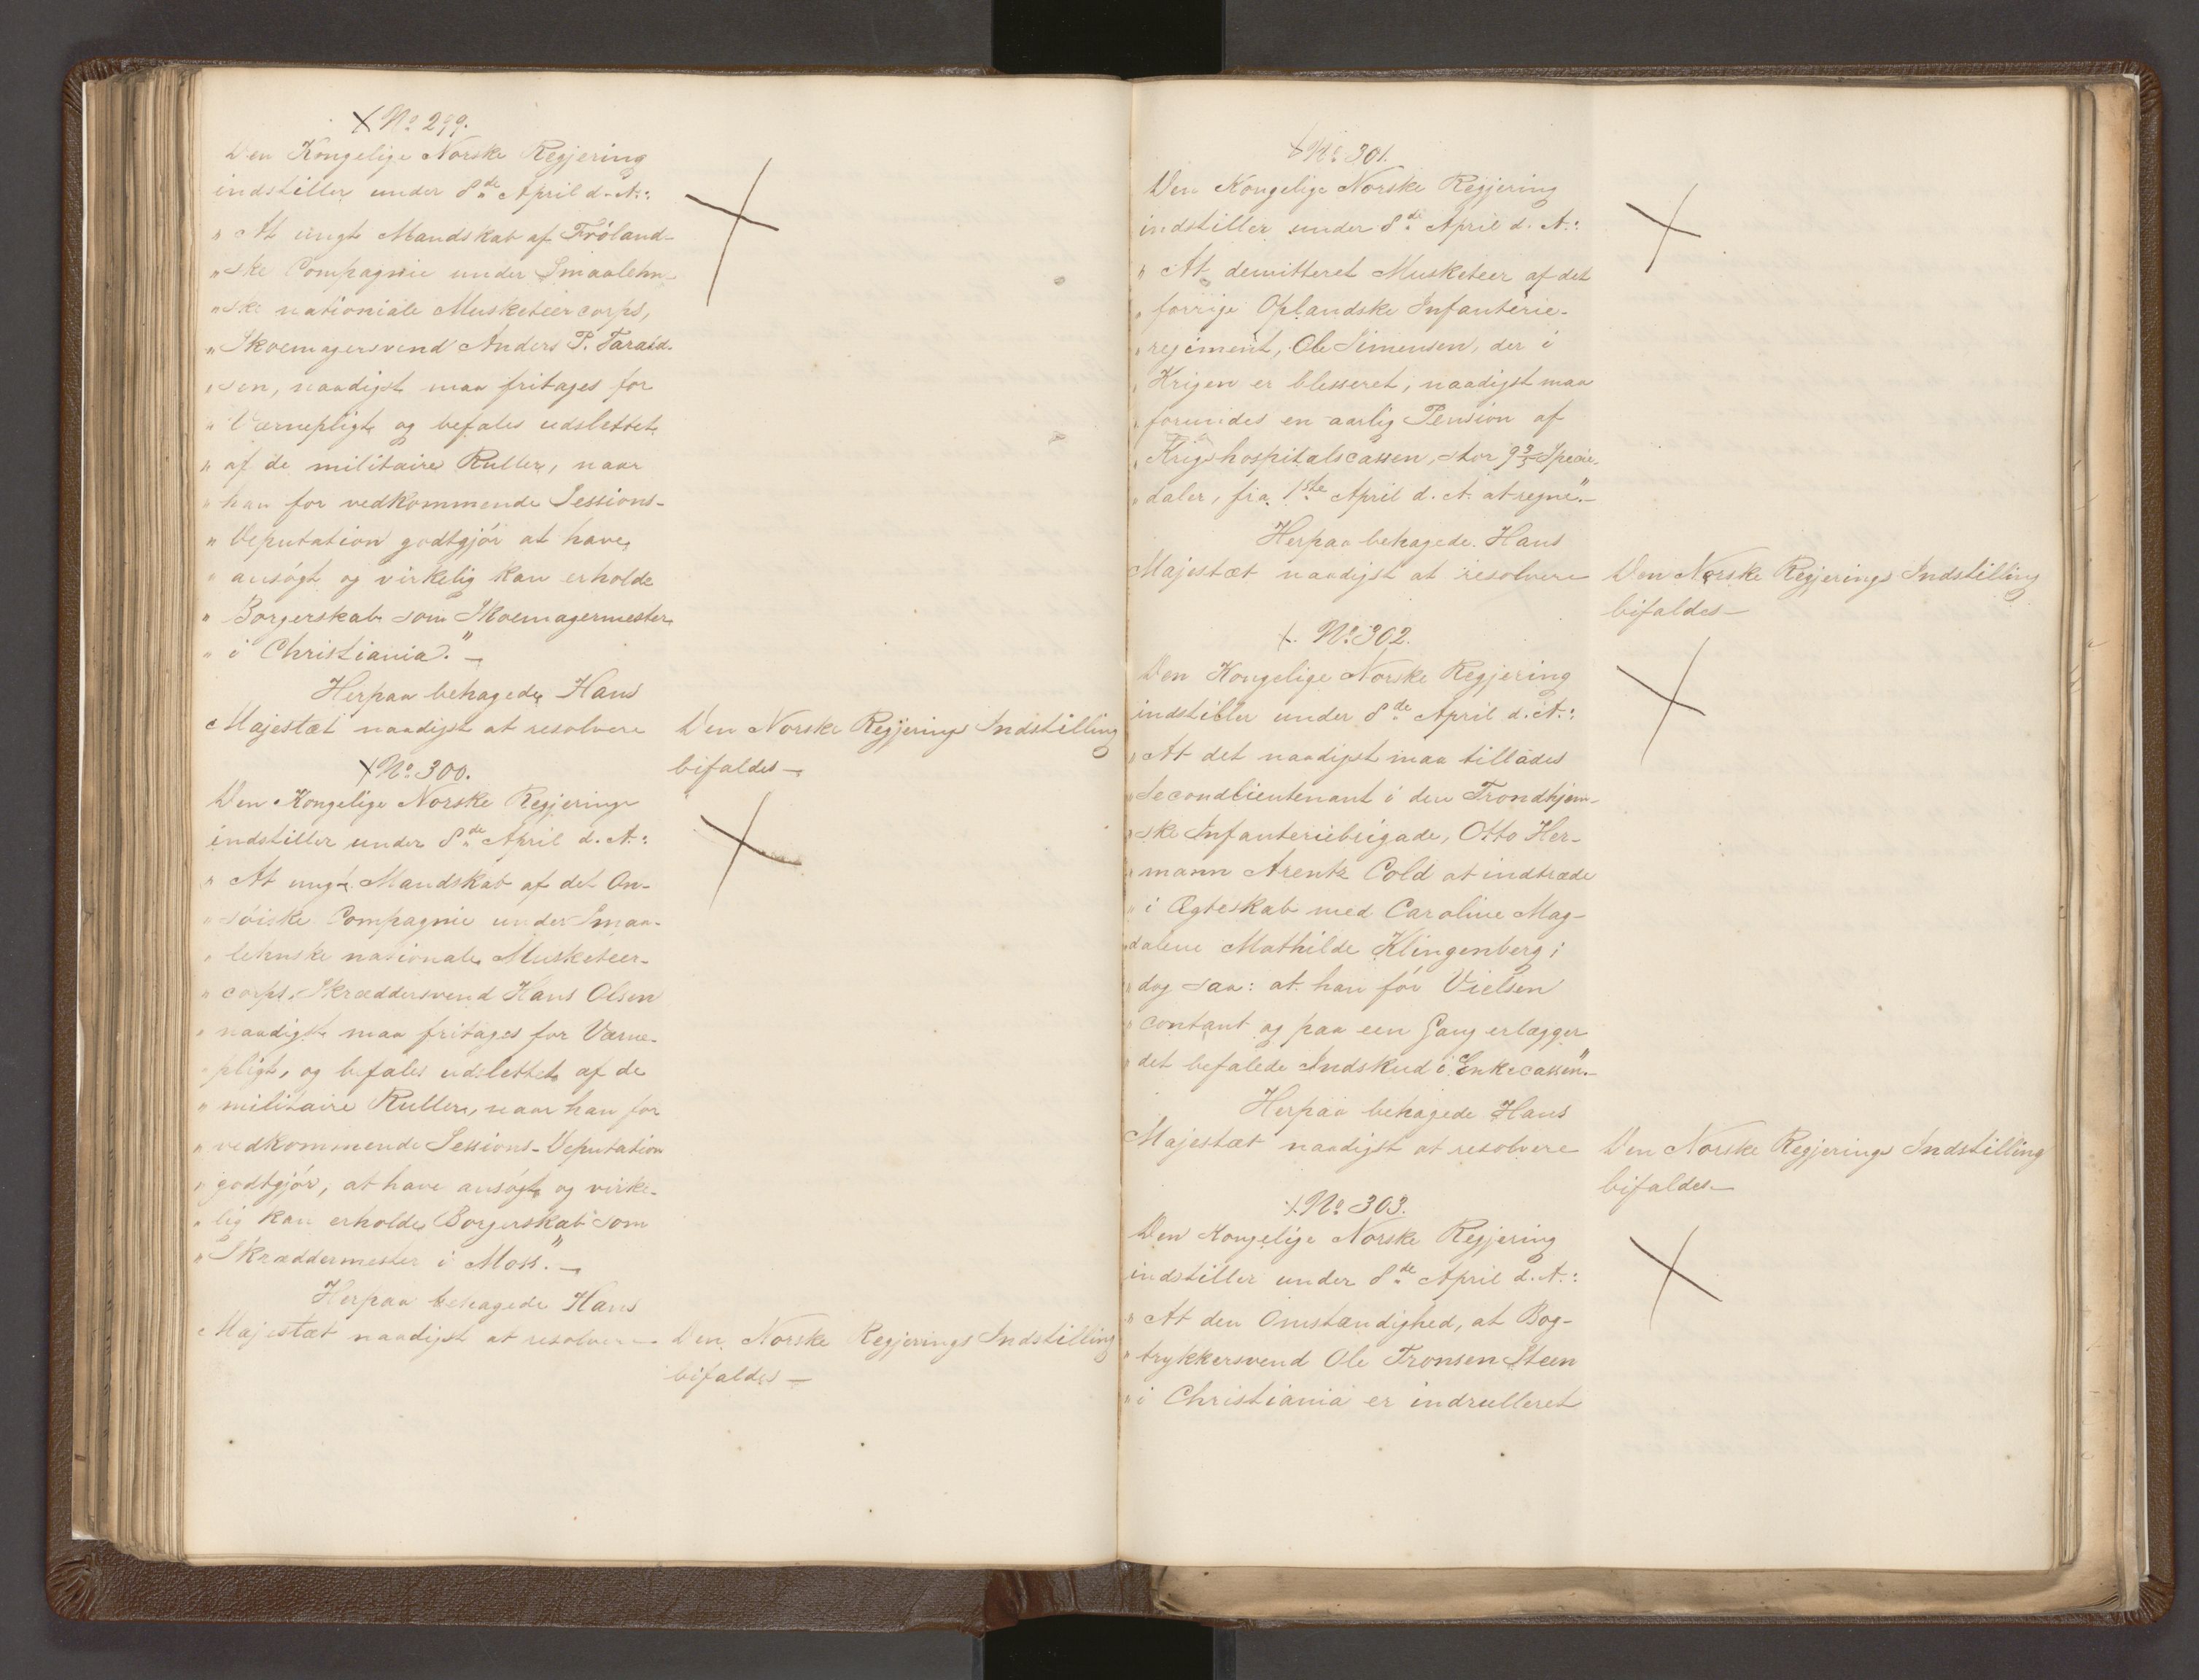 No 299.
Den Kongelige Norske Regjering
indstiller under 8de April d. A.:
" At ungt Mandskab af Fröland-
" ske Compagnie under Smaalehn-
" ske nationale Musketeercorps,
" Skoemagersvend Anders P. Tarald-
" sen, naadigst maa fritages for
" Værnepligt og befales udslettet
" af de militaire Ruller, naar
" han for vedkommende Sessions-
" Deputation godtgjör at have
" ansögt og virkelig kan erholde
" Borgerskab som Skoemagermester
" i Christiania." —
Herpaa behagede Hans
Majestæt naadigst at resolvere
Den Norske Regjerings Indstilling
bifaldes —
No 300.
Den Kongelige Norske Regjering
indstiller under 8de April d. A.:
" At ungt Mandskab af det On-
" söiske Compagnie under Smaa-
" lehnske nationale Musketeer-
" corps, Skræddersvend Hans Olsen
" naadigst maa fritages for Værne-
" pligt, og befales udslettet af de
" militaire Ruller, naar han for
" vedkommende Sessions-Deputation
" godtgjör, at have ansögt og virke-
" lig kan erholde Borgerskab som
" Skræddermester i Moss." —
Herpaa behagede Hans
Majestæt naadigst at resolvere
Den Norske Regjerings Indstilling
bifaldes —
No 301.
Den Kongelige Norske Regjering
indstiller under 8de April d. A.:
" At demitteret Musketeer af det
" forrige Oplandske Infanterie-
" regiment, Ole Simensen, der i
" Krigen er blesseret, naadigst maa
" forundes en aarlig Pension af
" Krigshospitalscassen, stor 9 3/5 Specie-
" daler, fra 1ste April d. A. at regne." —
Herpaa behagede Hans
Majestæt naadigst at resolvere
Den Norske Regjerings Indstilling
bifaldes —
No 302.
Den Kongelige Norske Regjering
indstiller under 8de April d. A.:
" At det naadigst maa tillades
" Secondlieutenant i den Trondhjem-
" ske Infanteriebrigade, Otto Her-
" mann Arentz Cold at indtræde
" i Ægteskab med Caroline Mag-
" dalene Mathilde Klingenberg;
" dog saa: at han för Vielsen
" contant og paa een Gang erlægger
" det befalede Indskud i Enkecassen." —
Herpaa behagede Hans
Majestæt naadigst at resolvere
Den Norske Regjerings Indstilling
bifaldes —
No 303.
Den Kongelige Norske Regjering
indstiller under 8de April d. A.:
" At den Omstændighed, at Bog-
" trykkersvend Ole Tronsen Steen
" i Christiania er indrulleret